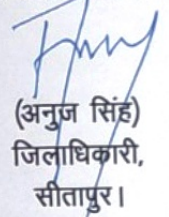 (अनुज सिंह)
जिलाधिकारी,
सीतापुर।